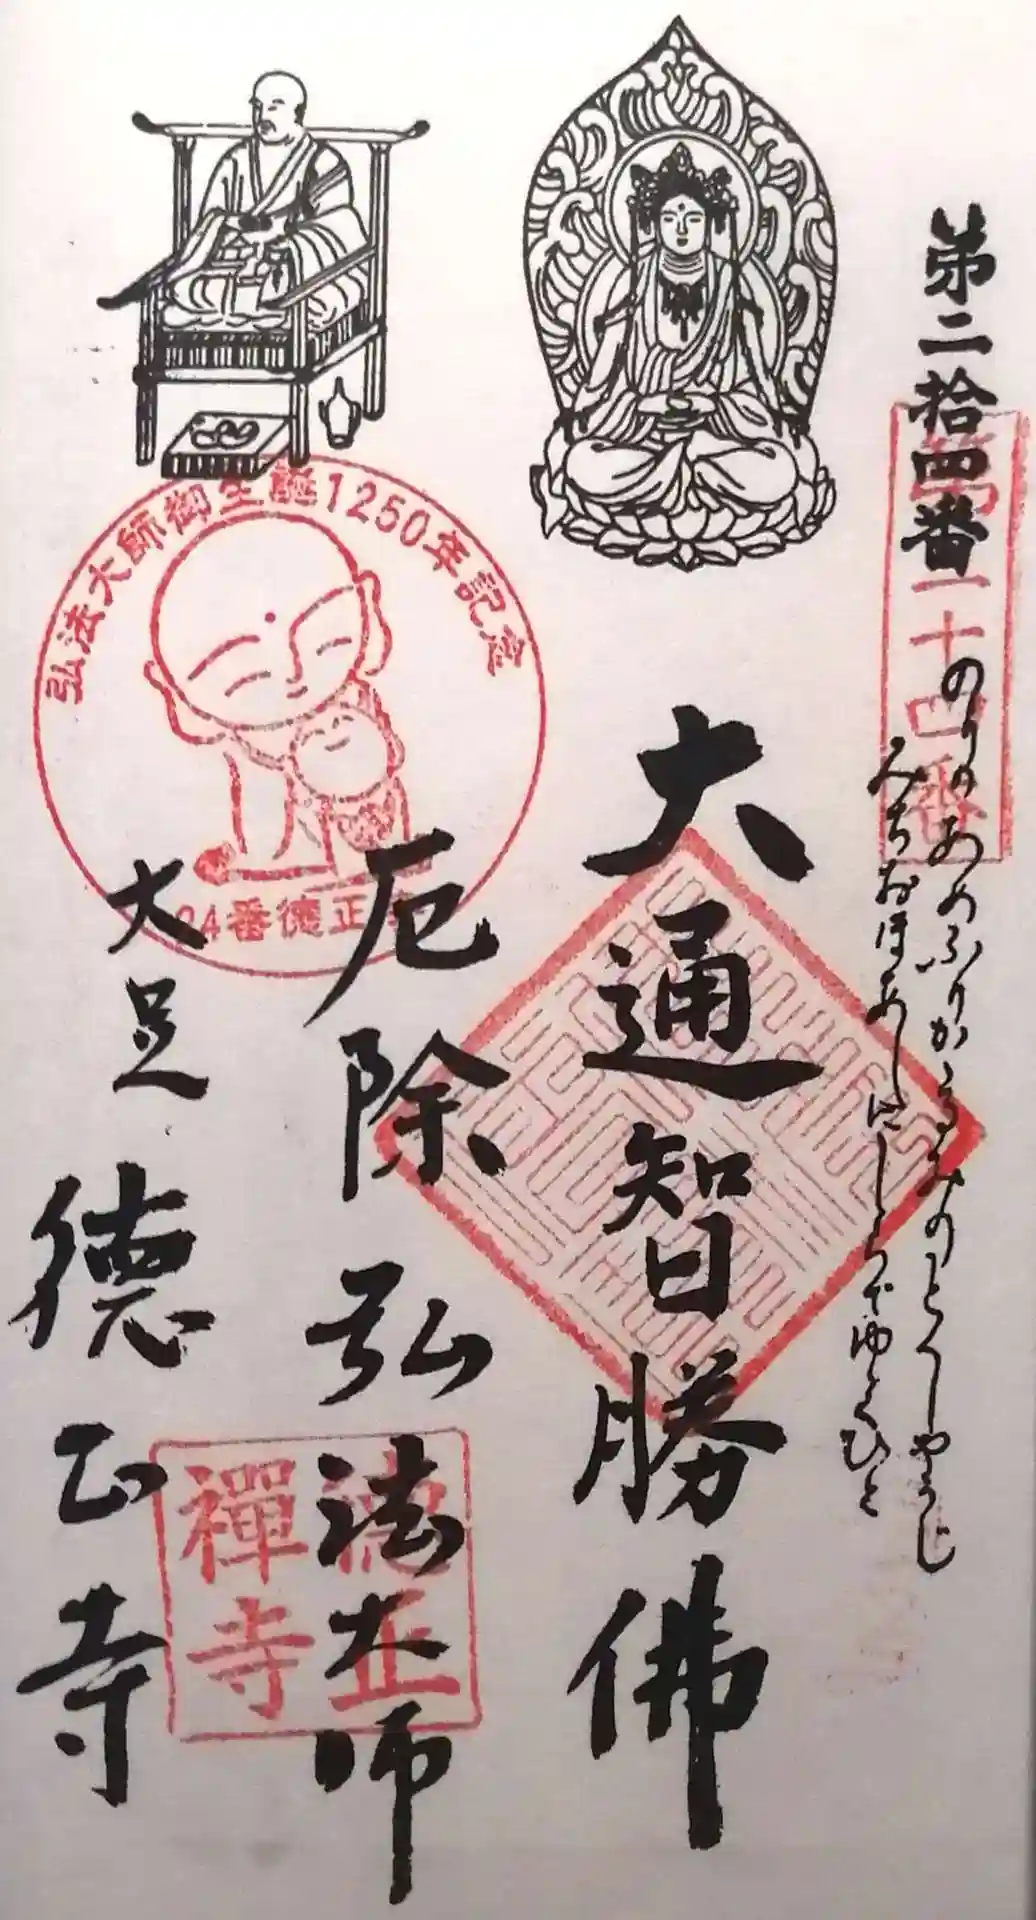 第二拾四番
第二十四番
のりのあめふりかかるみのとくしやうじ
みちおほあしにしらでゆくひと
大通智勝佛
厄除弘法大師
大足
德正寺
弘法大師御生誕1250年記念
24番徳正寺
德正
禪寺